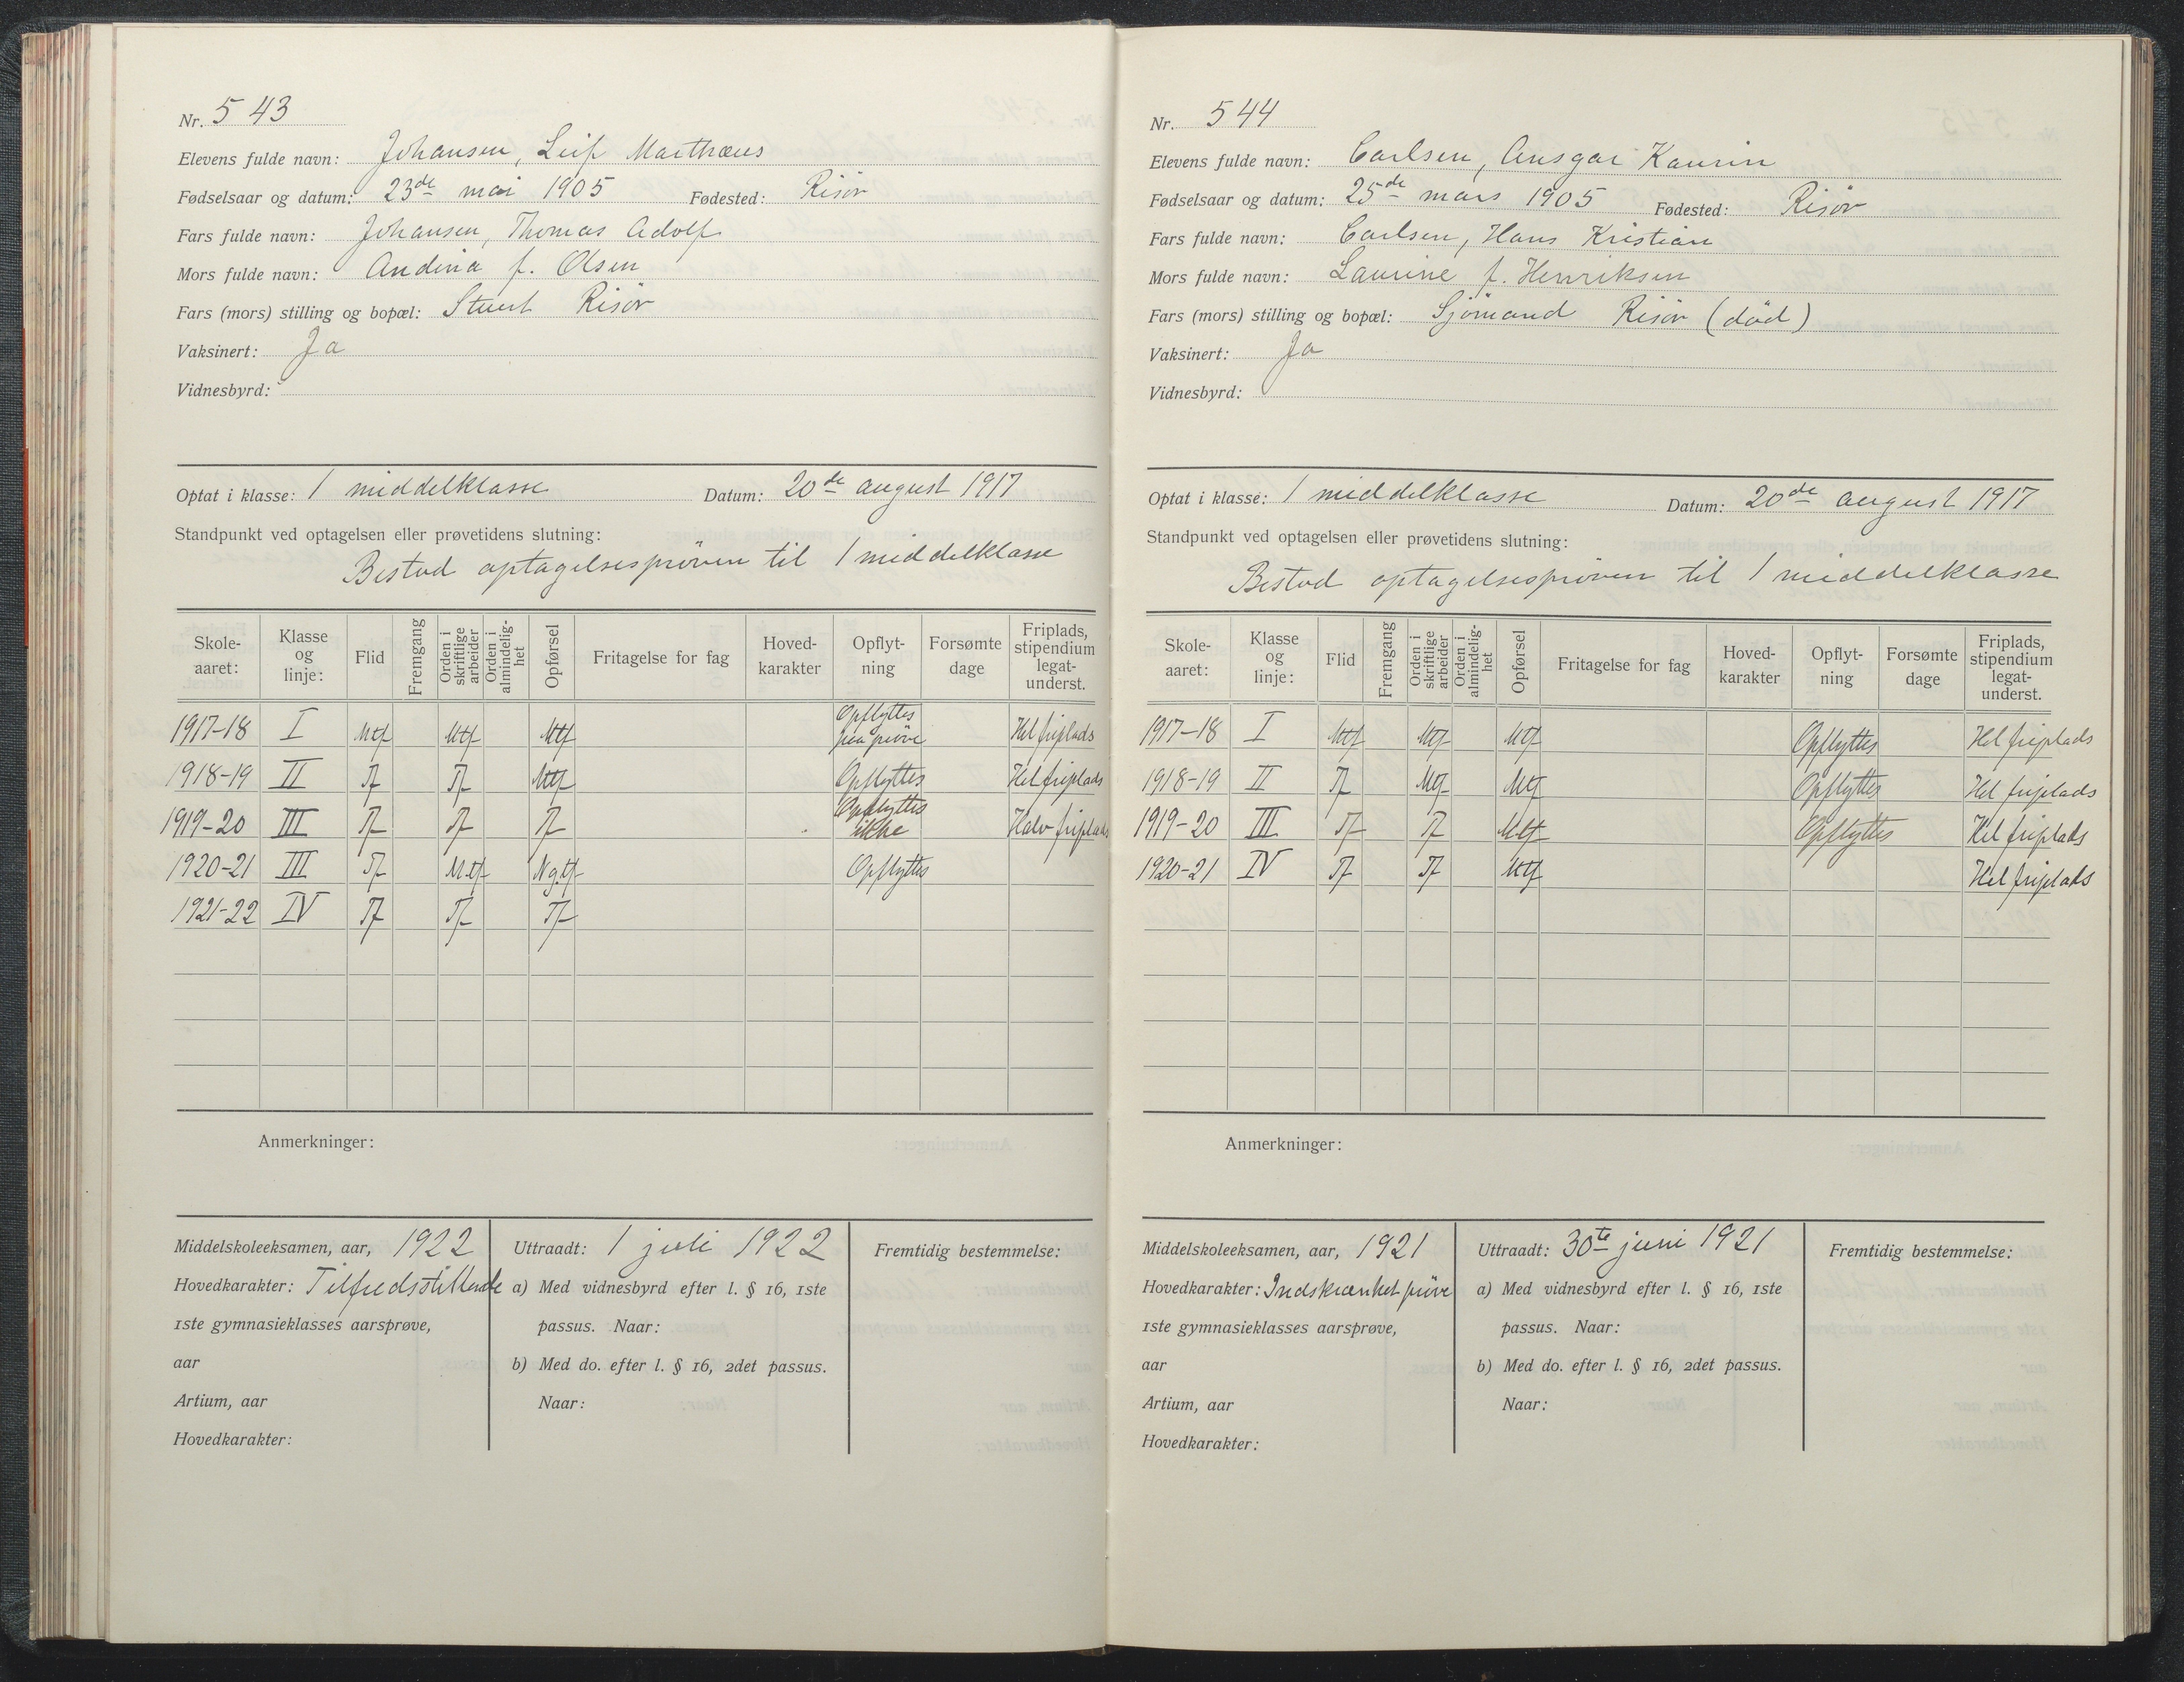 Nr. 543
Elevens fulde navn: Johansen, Leif Matthæus
Fødselsaar og datum: 23de mai 1905 Fødested: Risör
Fars fulde navn: Johansen, Thomas Adolf
Mors fulde navn: Andina f. Olsen
Fars (mors) stilling og bopæl: Stuert Risör
Vaksinert: Ja
Vidnesbyrd:
Optat i klasse: 1 middelklasse Datum: 20de august 1917
Standpunkt ved optagelsen eller prøvetidens slutning:
Bestod optagelsespröven til 1 middelklasse
Skole-aaret: Klasse og linje: Flid Fremgang Orden i skriftlige arbeider Orden i almindelig-het Opførsel Fritagelse for fag Hoved-karakter Opflyt-ning Forsømte dage Friplads, stipendium legat-underst.
1917-18 I Mtf Mtf Mtf Opflyttes paa pröve Hel friplads
1918-19 II Tf Tf Mtf Opflyttes Hel friplads
1919-20 III Tf Tf Tf Opflyttes ikke Halv friplads
1920-21 III Tf M.tf Ng.tf Opflyttes
1921-22 IV Tf Tf Tf
Anmerkninger:
Middelskoleeksamen, aar, 1922
Hovedkarakter: Tilfredsstillende
1ste gymnasieklasses aarsprøve,
aar
Artium, aar
Hovedkarakter:
Uttraadt: 1 juli 1922
a) Med vidnesbyrd efter l. § 16, 1ste
passus. Naar:
b) Med do. efter l. § 16, 2det passus.
Naar:
Fremtidig bestemmelse:
Nr. 544
Elevens fulde navn: Carlsen, Ansgar Kaurin
Fødselsaar og datum: 25de mars 1905 Fødested: Risör
Fars fulde navn: Carlsen, Hans Kristian
Mors fulde navn: Laurine f. Henriksen
Fars (mors) stilling og bopæl: Sjömand Risör (död)
Vaksinert: Ja
Vidnesbyrd:
Optat i klasse: 1 middelklasse Datum: 20de august 1917
Standpunkt ved optagelsen eller prøvetidens slutning:
Bestod optagelsespröven til 1 middelklasse
Skole-aaret: Klasse og linje: Flid Fremgang Orden i skriftlige arbeider Orden i almindelig-het Opførsel Fritagelse for fag Hoved-karakter Opflyt-ning Forsømte dage Friplads, stipendium legat-underst.
1917-18 I Mtf Mtf Mtf Opflyttes Hel friplads
1918-19 II Tf Mtf Mtf Opflyttes Hel friplads
1919-20 III Tf Tf Mtf Opflyttes Hel friplads
1920-21 IV Tf Tf Mtf Hel friplads
Anmerkninger:
Middelskoleeksamen, aar, 1921
Hovedkarakter: Indskrænket pröve
1ste gymnasieklasses aarsprøve,
aar
Artium, aar
Hovedkarakter:
Uttraadt: 30te juni 1921
a) Med vidnesbyrd efter l. § 16, 1ste
passus. Naar:
b) Med do. efter l. § 16, 2det passus.
Naar:
Fremtidig bestemmelse: